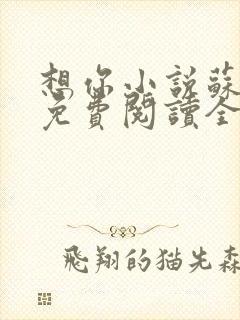 想你小説蘇
免費閱讀全
飛翔的猫先森